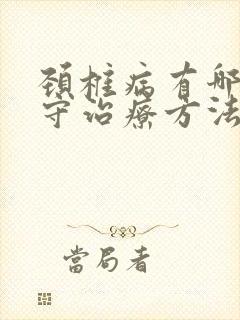 頚椎病有哪
守治療方法
當局者